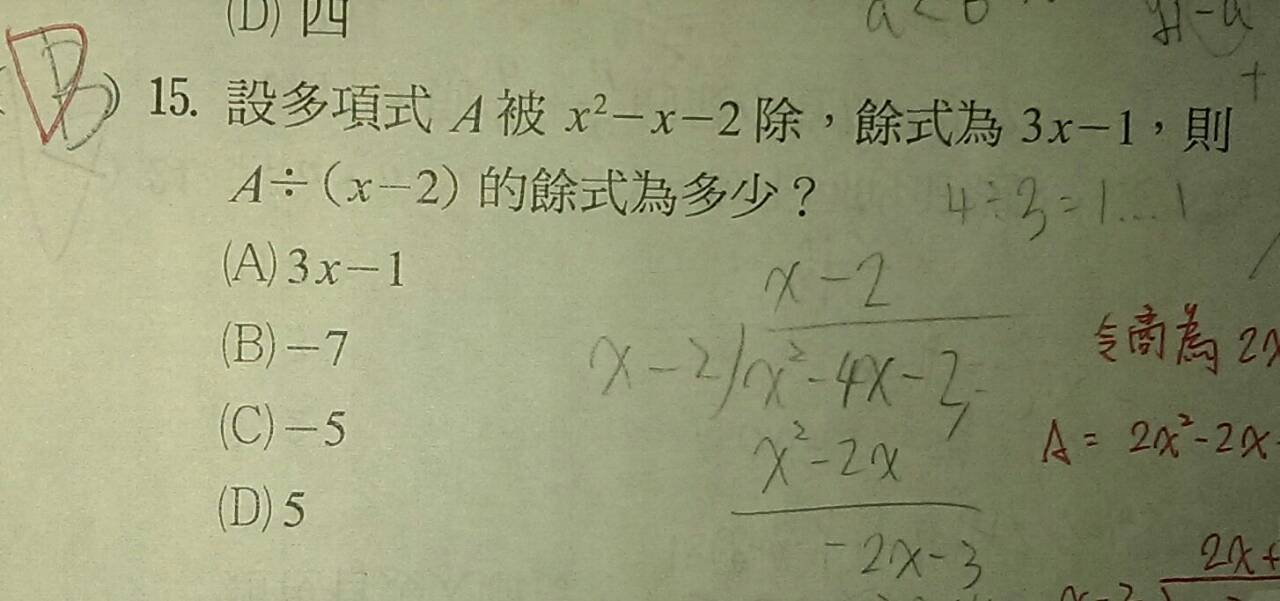 (D) 四
a < 0
D
15. 設多項式 A 被 x²−x−2 除，餘式為 3x−1，則
A÷(x−2) 的餘式為多少？
4÷3=1...1
(A) 3x−1
(B) −7
(C) −5
(D) 5
x−2
x−2)x²-4x-2
x²-2x
-2x-3
令商為 2x
A = 2x²-2x
2x+